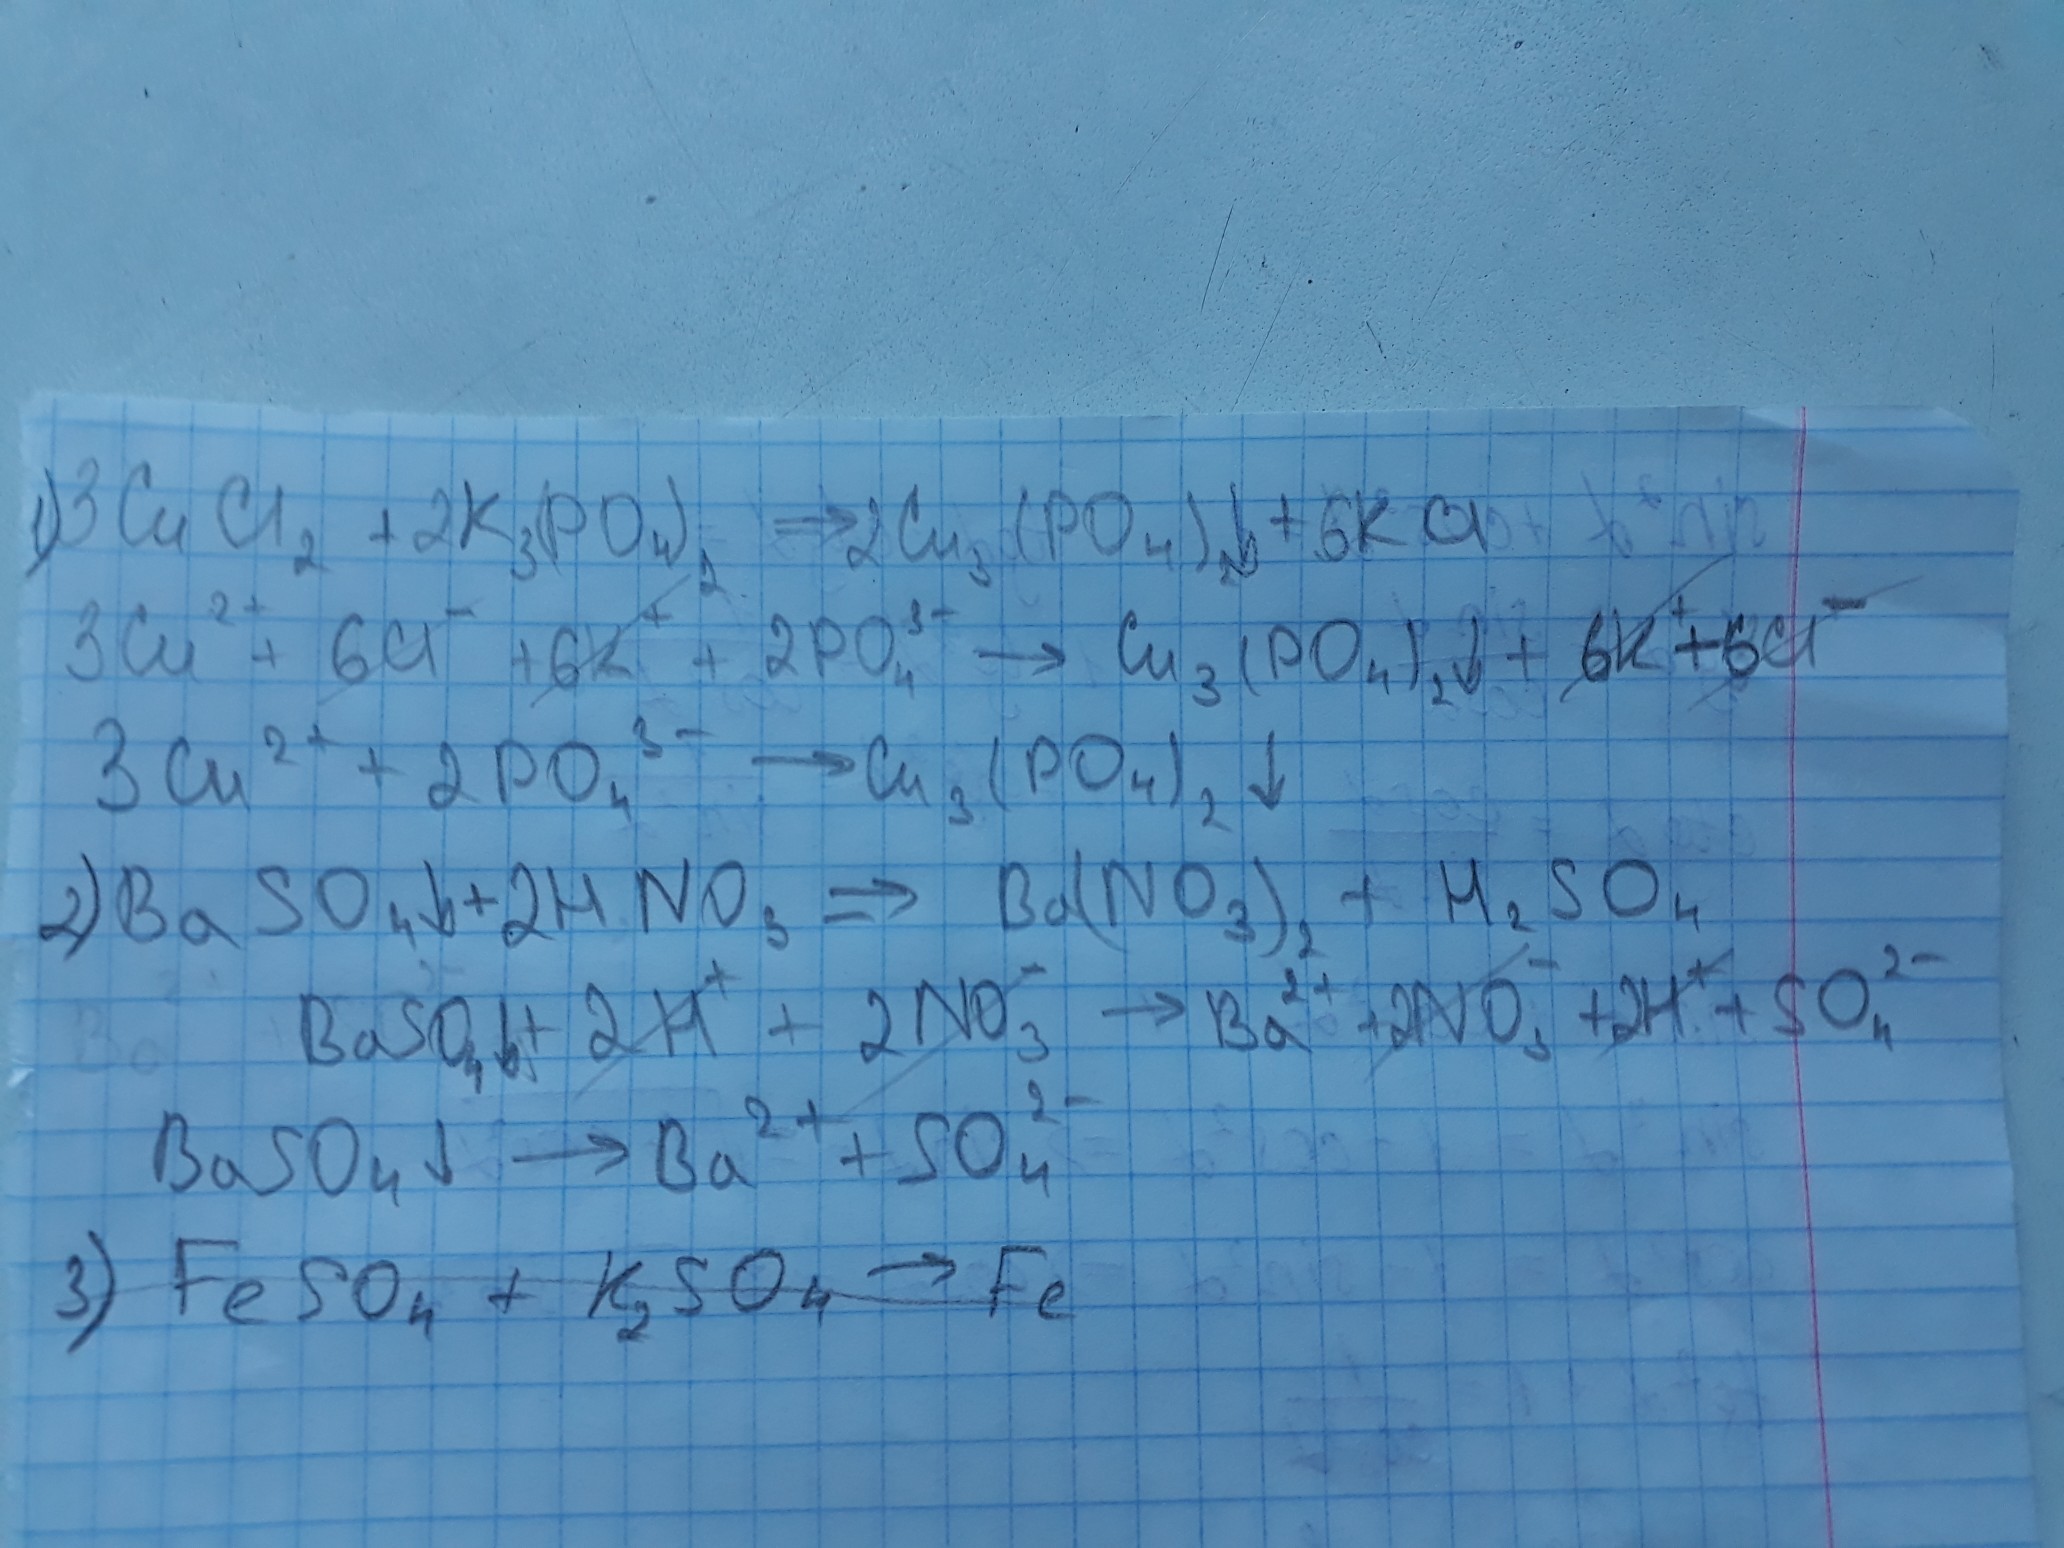 1) 3CuCl₂ + 2K₃(PO₄)₂ ⇒ 2Cu₃(PO₄)₂↓ + 6KCl
3Cu²⁺ + 6Cl⁻ + 6K⁺ + 2PO₄³⁻ → Cu₃(PO₄)₂↓ + 6K⁺ + 6Cl⁻
3Cu²⁺ + 2PO₄³⁻ → Cu₃(PO₄)₂↓
2) BaSO₄↓ + 2HNO₃ ⇒ Ba(NO₃)₂ + H₂SO₄
BaSO₄↓ + 2H⁺ + 2NO₃⁻ → Ba²⁺ + 2NO₃⁻ + 2H⁺ + SO₄²⁻
BaSO₄↓ → Ba²⁺ + SO₄²⁻
3) FeSO₄ + K₂SO₄ → Fe